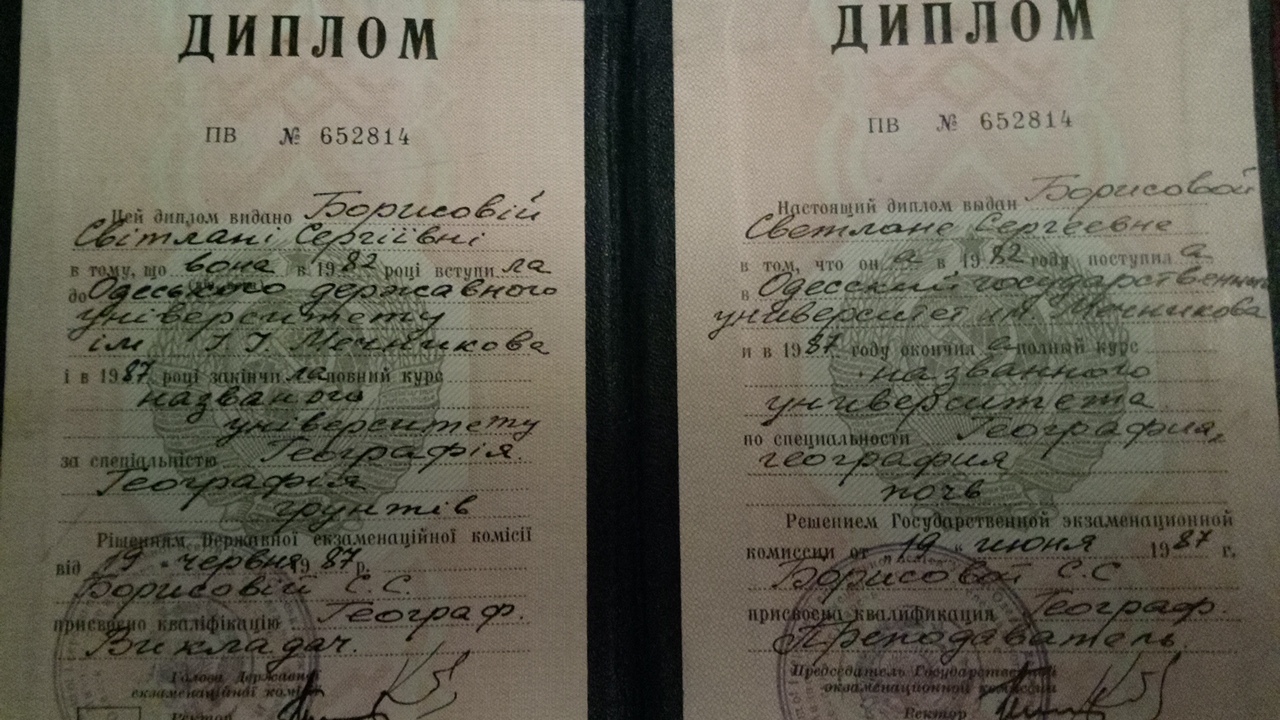 ДИПЛОМ
ПВ № 652814
Цей диплом видано Борисовій
Світлані Сергіївні
в тому, що вона в 1982 році вступила
до Одеського державного
університету
ім І.І. Мечникова
і в 1987 році закінчила повний курс
названого
університету
за спеціальністю Географія.
Географія
грунтів
Рішенням Державної екзаменаційної комісії
від 19 червня 1987 р.
Борисовій С.С.
присвоєно кваліфікацію Географ.
Викладач.
Голова Державної
екзаменаційної комісії
Ректор
ДИПЛОМ
ПВ № 652814
Настоящий диплом выдан Борисовой
Светлане Сергеевне
в том, что она в 1982 году поступила
в Одесский государственный
университет им Мечникова
и в 1987 году окончила полный курс
названного
университета
по специальности География,
география
почв
Решением Государственной экзаменационной
комиссии от „19“ июня 1987 г.
Борисовой С.С
присвоена квалификация Географ.
Преподаватель
Председатель Государственной
экзаменационной комиссии
Ректор